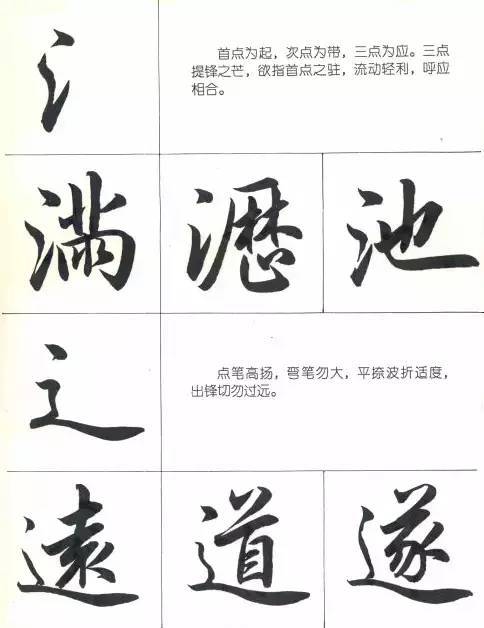 氵
首点为起，次点为带，三点为应。三点
提锋之芒，欲指首点之驻，流动轻利，呼应
相合。
滿 瀝 池
辶
点笔高扬，弯笔勿大，平捺波折适度，
出锋切勿过远。
遠 道 遂